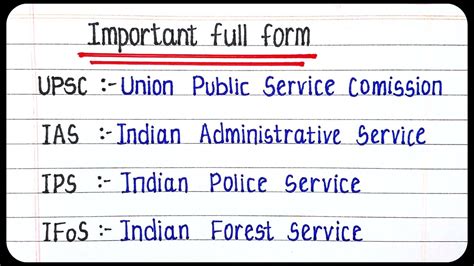 Important full form
UPSC :- Union Public Service Comission
IAS :- Indian Administrative Service
IPS :- Indian Police Service
IFoS :- Indian Forest Service